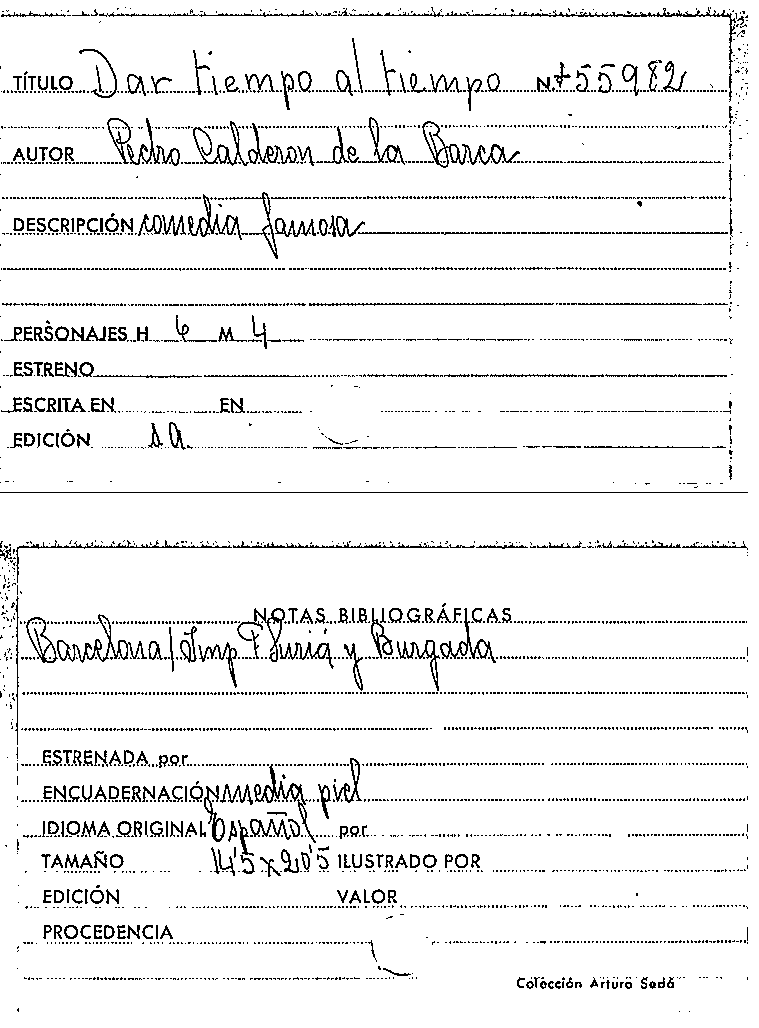 TÍTULO Dar tiempo al tiempo N.º 55982
AUTOR Pedro Calderon de la Barca
DESCRIPCIÓN comedia famosa
PERSONAJES H 6 M 4
ESTRENO
ESCRITA EN EN
EDICIÓN s.a.
NOTAS BIBLIOGRÁFICAS
Barcelona / Imp F Suriá y Burgada
ESTRENADA por
ENCUADERNACIÓN media piel
IDIOMA ORIGINAL Español por
TAMAÑO 14'5 x 20'5 ILUSTRADO POR
EDICIÓN VALOR
PROCEDENCIA
Colección Arturo Sedó